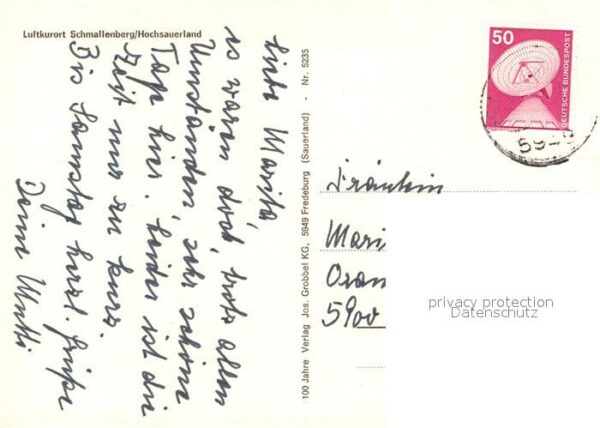 Luftkurort Schmallenberg/Hochsauerland
Liebe Marita,
es waren doch, trotz allen
Umständen, sehr schöne
Tage hier. Leider ist die
Zeit nur zu kurz.
Bis Samstag herzl. Grüße
Deine Mutti
100 Jahre Verlag Jos. Grobbel KG, 5949 Fredeburg (Sauerland) - Nr. 5235
50
DEUTSCHE BUNDESPOST
59-
Fräulein
Mari
Oran
5900
privacy protection
Datenschutz